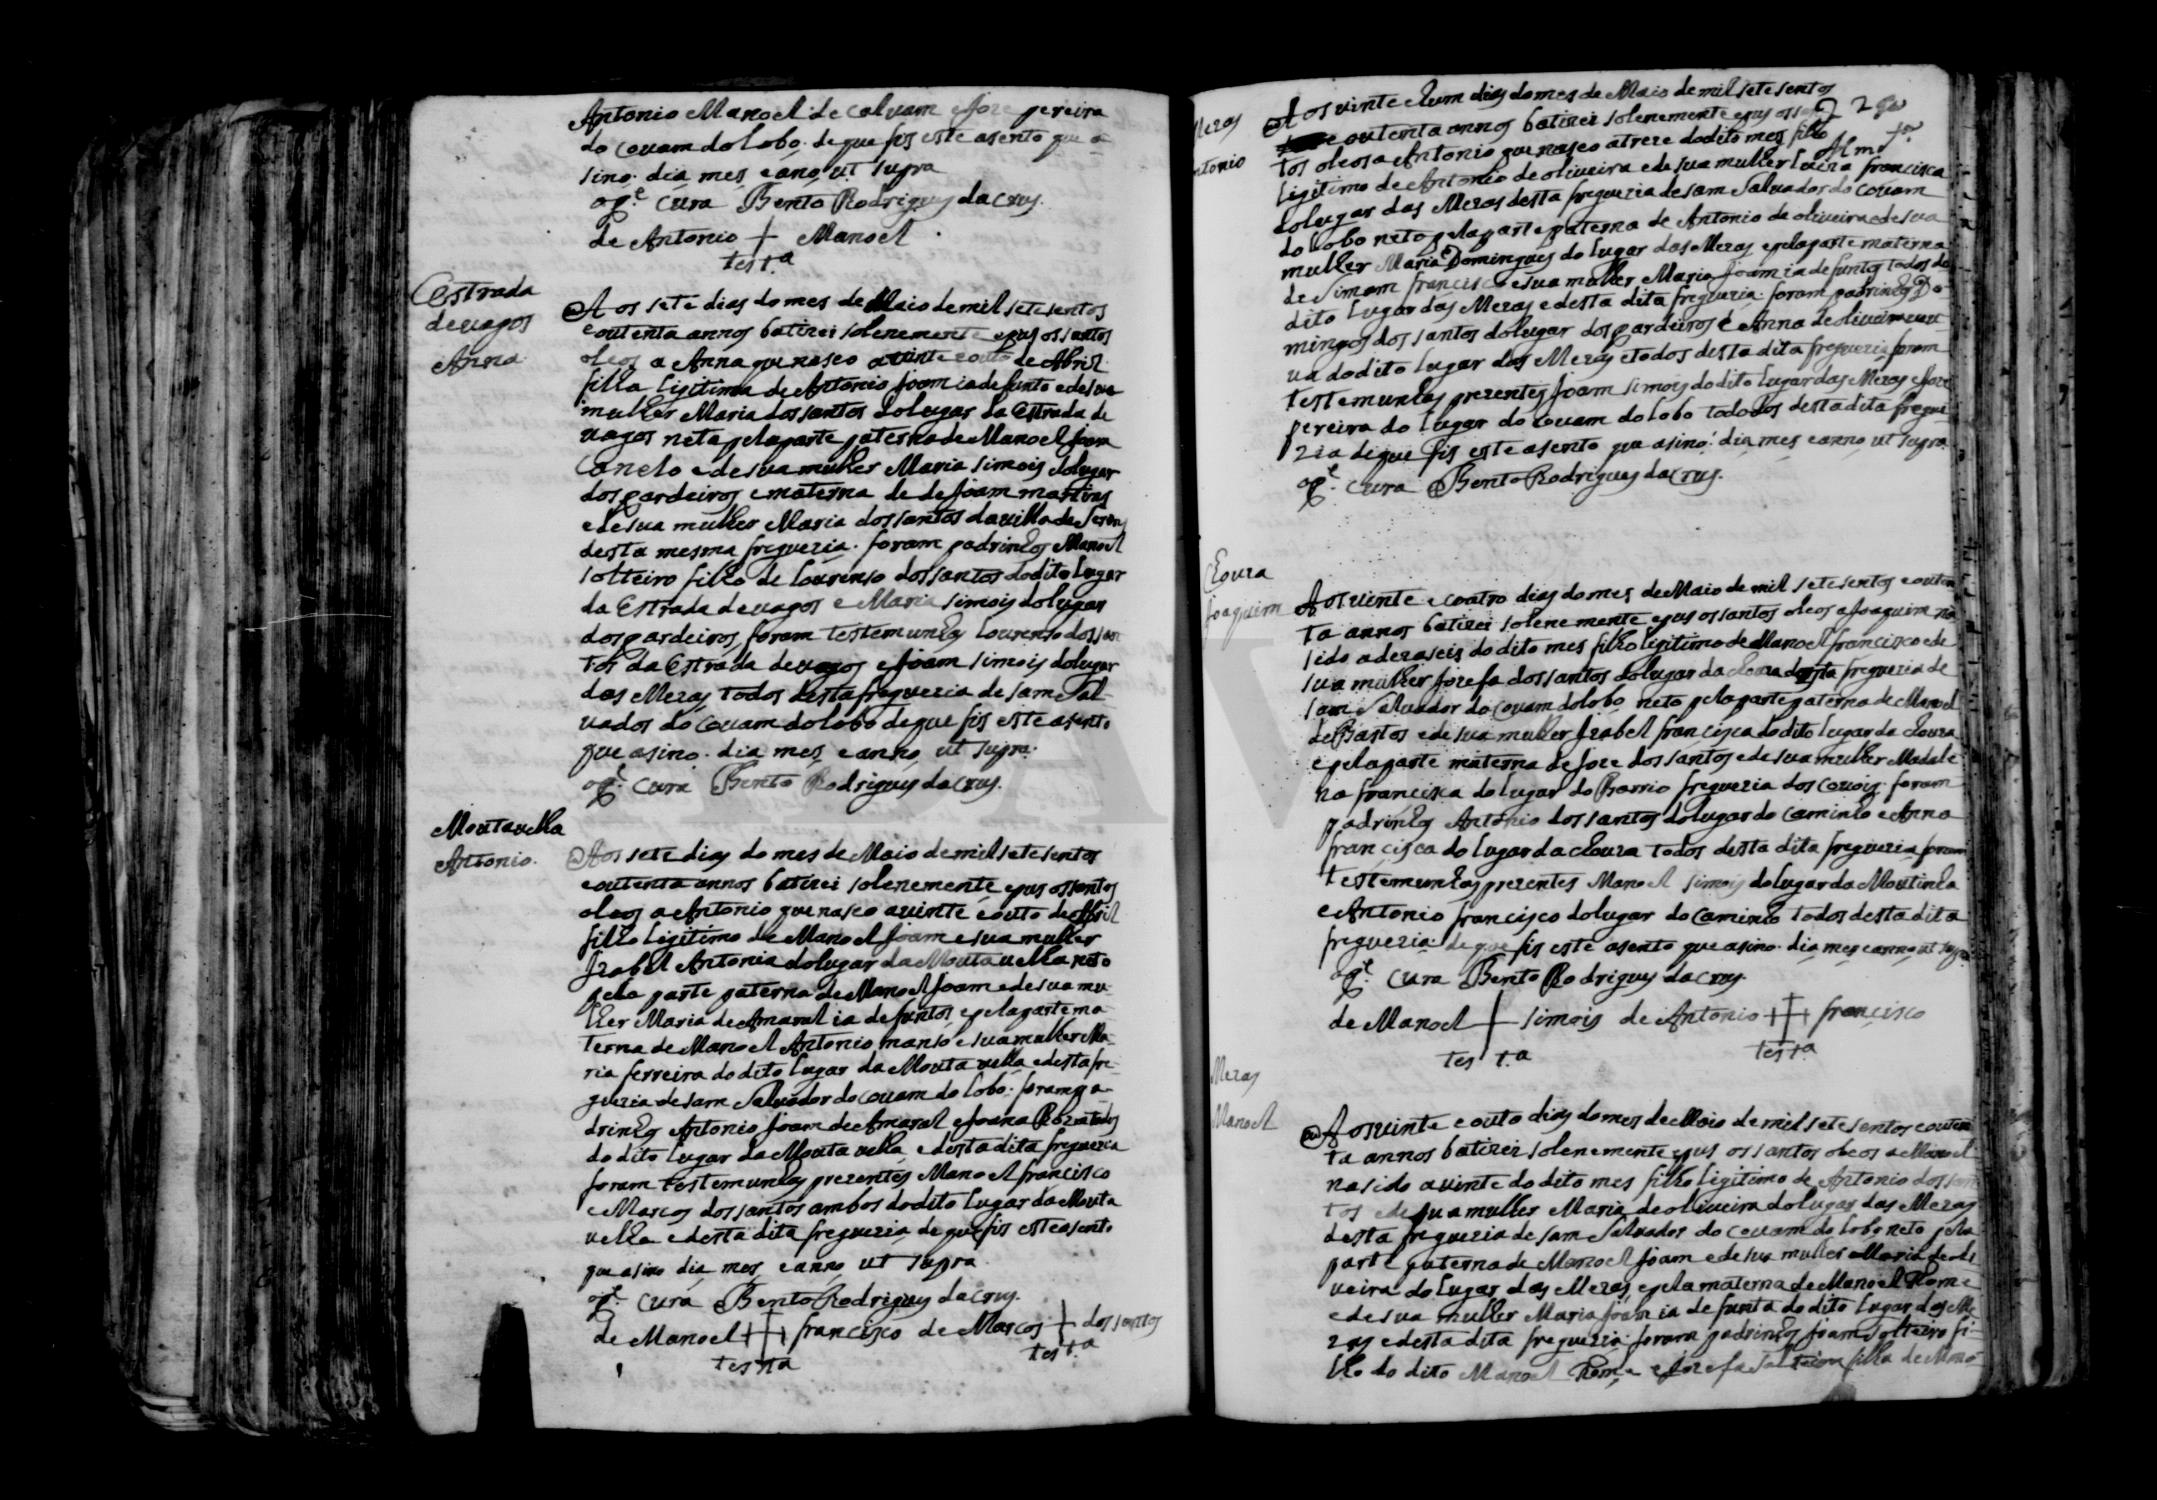 Antonio Manoel de Caluam e Joze pereira
do couam do lobo. de que fis este asento que a-
sino. dia mes e ano ut supra
o Pe. cura Bento Rodrigues da Crus.
de Antonio + Manoel.
test.a
Estrada
de uagos
Anna
Aos sete dias do mes de Maio de mil setesentos
e outenta annos batizei solenemente e pus os santos
oleos a Anna que nasco a vinte e outo de Abril
filha legitima de Antonio Joam ia defunto e de sua
mulher Maria dos santos do lugar da Estrada de
uagos neta pela parte paterna de Manoel Joam
Canelo e de sua mulher Maria simois do lugar
dos pardeiros e materna de de Joam martins
e de sua mulher Maria dos santos da villa de Seron
desta mesma freguezia. foram padrinhos Manoel
solteiro filho de lourenso dos santos do dito lugar
da Estrada de uagos e Maria simois do lugar
dos pardeiros, foram testemunhas lourenso dos san
tos da Estrada de uagos e Joam simois do lugar
das Mezas todos desta freguezia de sam Sal-
uador do Couam do lobo de que fis este asento
que asino. dia mes e anno ut supra.
o Pe. cura Bento Rodrigues da Crus.
Moutauelha
Antonio.
Aos sete dias do mes de Maio de mil setesentos
e outenta annos batizei solenemente e pus os santos
oleos a Antonio que nasco a vinte e outo de Abril
filho legitimo de Manoel Joam e sua mulher
Izabel Antonia do lugar da Mouta uelha neto
pela parte paterna de Manoel Joam e de sua mu-
lher Maria de Amaral ia defuntos, e pela parte ma-
terna de Manoel Antonio manso e sua mulher Ma-
ria ferreira do dito lugar da Mouta uelha e desta fre-
guezia de sam Saluador do couam do lobo. foram pa-
drinhos Antonio Joam de Amaral e Joana Roza todos
do dito lugar da Mouta uelha e desta dita freguezia
foram testemunhas prezentes Manoel francisco
e Marcos dos santos ambos do dito lugar da Mouta
uelha e desta dita freguezia de que fis este asento
que asino dia mes e anno ut supra.
o Pe. cura Bento Rodrigues da Crus.
de Manoel + francisco de Marcos + dos santos
testa test.a
Mezas
Antonio
Aos uinte e hum dias do mes de Maio de mil setesentos
e outenta annos batizei solenemente e pus os san
tos oleos a Antonio que nasco a treze do dito mes filho
legitimo de Antonio de oliueira e de sua mulher Luiza francisca
do lugar das Mezas desta freguezia de sam Saluador do couam
do lobo neto pela parte paterna de Antonio de oliueira e de sua
mulher Maria Domingues do lugar das Mezas e pela parte materna
de Simam francisco e sua mulher Maria Joam ia defuntos todos do
dito lugar das Mezas e desta dita freguezia. foram padrinhos Do-
mingos dos santos do lugar dos pardeiros e Anna de oliueira uiu-
ua do dito lugar das Mezas e todos desta dita freguezia foram
testemunhas prezentes Joam simois do dito lugar das Mezas e Joze
pereira do lugar do couam do lobo todos desta dita fregue
zia de que fis este asento que asino. dia mes e anno ut supra
o Pe. cura Bento Rodrigues da Crus.
Choura
Joaquim
Aos uinte e coatro dias do mes de Maio de mil setesentos e outen
ta annos batizei solenemente e pus os santos oleos a Joaquim na
sido a dezaseis do dito mes filho legitimo de Manoel francisco e de
sua mulher Jozefa dos santos do lugar da choura desta freguezia de
sam Saluador do Couam do lobo neto pela parte paterna de Manoel
de Bastos e de sua mulher Izabel francisca do dito lugar da choura
e pela parte materna de Joze dos santos e de sua mulher Madale-
na francisca do lugar do Barrio freguezia dos couois. foram
padrinhos Antonio dos santos do lugar do caminho e Anna
francisca do lugar da choura todos desta dita freguezia foram
testemunhas prezentes Manoel simois do lugar da Moutinha
e Antonio francisco do lugar do caminho todos desta dita
freguezia de que fis este asento que asino. dia mes e anno ut supra
o Pe. cura Bento Rodrigues da Crus.
de Manoel + simois de Antonio + francisco
test.a testa
Mezas
Manoel
Aos uinte e outo dias do mes de Maio de mil setesentos e outen
ta annos batizei solenemente e pus os santos oleos a Manoel
nasido a uinte do dito mes filho legitimo de Antonio dos san
tos e de sua mulher Maria de oliueira do lugar das Mezas
desta freguezia de sam Saluador do couam do lobo neto pela
parte paterna de Manoel Joam e de sua mulher Maria de oli
ueira do lugar das Mezas, e pela materna de Manoel Thome
e de sua mulher Maria Joam ia defunta do dito lugar das Me
zas e desta dita freguezia. foram padrinhos Joam solteiro fi-
lho do dito Manoel Thome e Jozefa solteira filha de Mano